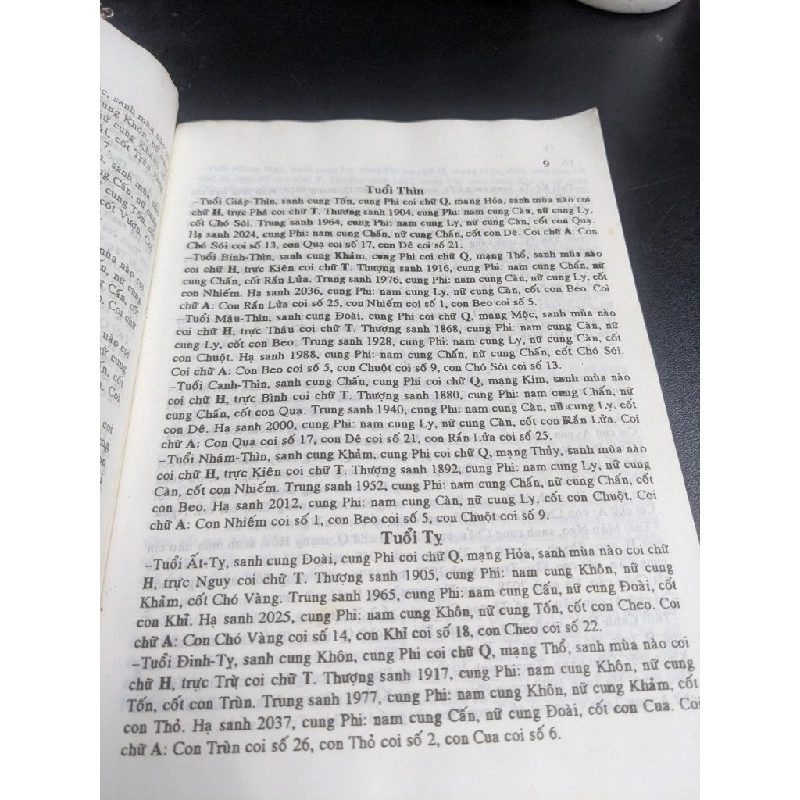 9
Tuổi Thìn
–Tuổi Giáp-Thìn, sanh cung Tốn, cung Phi coi chữ Q, mạng Hỏa, sanh mùa nào coi
chữ H, trực Phá coi chữ T. Thượng sanh 1904, cung Phi: nam cung Càn, nữ cung Ly,
cốt Chó Sói. Trung sanh 1964, cung Phi: nam cung Ly, nữ cung Càn, cốt con Quạ.
Hạ sanh 2024, cung Phi: nam cung Chấn, nữ cung Chấn, cốt con Dê. Chữ A: Con
Chó Sói coi số 13, con Quạ coi số 17, con Dê coi số 21.
–Tuổi Bính-Thìn, sanh cung Khảm, cung Phi coi chữ Q, mạng Thổ, sanh mùa nào
coi chữ H, trực Kiên coi chữ T. Thượng sanh 1916, cung Phi: nam cung Chấn, nữ
cung Chấn, cốt Rắn Lửa. Trung sanh 1976, cung Phi: nam cung Càn, nữ cung Ly, cốt
con Nhiếm. Hạ sanh 2036, cung Phi: nam cung Ly, nữ cung Càn, cốt con Beo. Coi
chữ A: Con Rắn Lửa coi số 25, con Nhiếm coi số 1, con Beo coi số 5.
–Tuổi Mậu-Thìn, sanh cung Đoài, cung Phi coi chữ Q, mạng Mộc, sanh mùa nào
coi chữ H, trực Thâu coi chữ T. Thượng sanh 1868, cung Phi: nam cung Càn, nữ
cung Ly, cốt con Beo. Trung sanh 1928, cung Phi: nam cung Ly, nữ cung Càn, cốt
con Chuột. Hạ sanh 1988, cung Phi: nam cung Chấn, nữ cung Chấn, cốt Chó Sói.
Coi chữ A: Con Beo coi số 5, con Chuột coi số 9, con Chó Sói coi số 13.
–Tuổi Canh-Thìn, sanh cung Chấn, cung Phi coi chữ Q, mạng Kim, sanh mùa nào
coi chữ H, trực Bình coi chữ T. Thượng sanh 1880, cung Phi: nam cung Chấn, nữ
cung Chấn, cốt con Quạ. Trung sanh 1940, cung Phi: nam cung Càn, nữ cung Ly, cốt
con Dê. Hạ sanh 2000, cung Phi: nam cung Ly, nữ cung Càn, cốt con Rắn Lửa. Coi
chữ A: Con Quạ coi số 17, con Dê coi số 21, con Rắn Lửa coi số 25.
–Tuổi Nhâm-Thìn, sanh cung Khảm, cung Phi coi chữ Q, mạng Thủy, sanh mùa nào
coi chữ H, trực Kiên coi chữ T. Thượng sanh 1892, cung Phi: nam cung Ly, nữ cung
Càn, cốt con Nhiếm. Trung sanh 1952, cung Phi: nam cung Chấn, nữ cung Chấn, cốt
con Beo. Hạ sanh 2012, cung Phi: nam cung Càn, nữ cung Ly, cốt con Chuột. Coi
chữ A: Con Nhiếm coi số 1, con Beo coi số 5, con Chuột coi số 9.
Tuổi Tỵ
–Tuổi Ất-Tỵ, sanh cung Đoài, cung Phi coi chữ Q, mạng Hỏa, sanh mùa nào coi chữ
H, trực Nguy coi chữ T. Thượng sanh 1905, cung Phi: nam cung Khôn, nữ cung
Khảm, cốt Chó Vàng. Trung sanh 1965, cung Phi: nam cung Cấn, nữ cung Đoài, cốt
con Khỉ. Hạ sanh 2025, cung Phi: nam cung Khôn, nữ cung Tốn, cốt con Cheo. Coi
chữ A: Con Chó Vàng coi số 14, con Khỉ coi số 18, con Cheo coi số 22.
–Tuổi Đinh-Tỵ, sanh cung Khôn, cung Phi coi chữ Q, mạng Thổ, sanh mùa nào coi
chữ H, trực Trừ coi chữ T. Thượng sanh 1917, cung Phi: nam cung Khôn, nữ cung
Tốn, cốt con Trùn. Trung sanh 1977, cung Phi: nam cung Khôn, nữ cung Khảm, cốt
con Thỏ. Hạ sanh 2037, cung Phi: nam cung Cấn, nữ cung Đoài, cốt con Cua. Coi
chữ A: Con Trùn coi số 26, con Thỏ coi số 2, con Cua coi số 6.